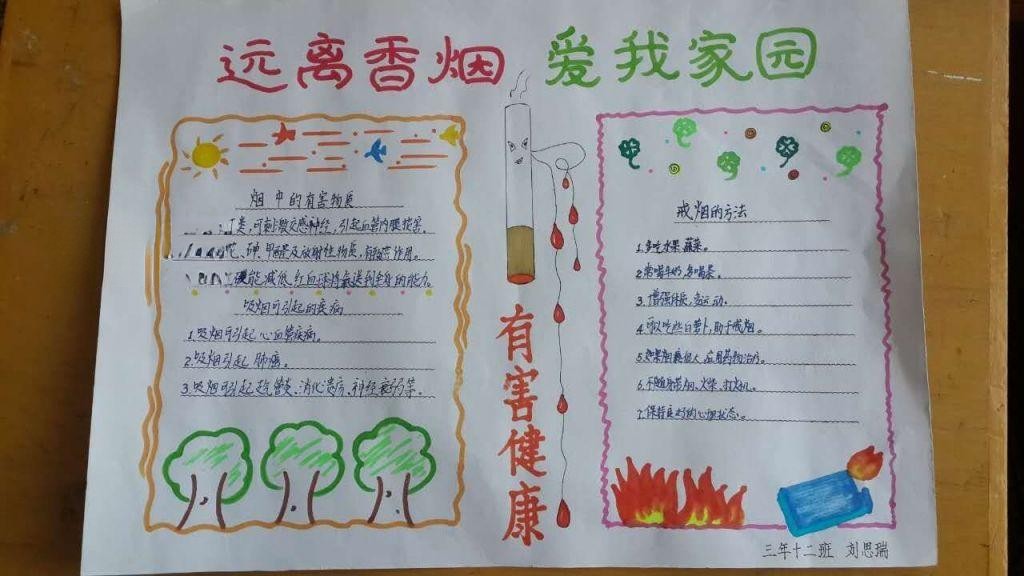 远离香烟 爱我家园
烟中的有害物质
丁类,可刺激交感神经,引起血管内膜损害。
砷、甲醛及放射性物质,有致癌作用。
碳能减低红血球将氧送到全身的能力。
吸烟可引起的疾病
1.吸烟可引起心血管疾病。
2.吸烟引起肺癌。
3.吸烟可引起支气管炎、消化道病、神经衰弱等。
有害健康
戒烟的方法
1.多吃水果、蔬菜。
2.常喝牛奶,多喝茶。
3.增强体质,多运动。
4.可以吃些白萝卜,助于戒烟。
5.如果烟瘾很大,应用药物治疗。
6.不随身带烟、火柴、打火机。
7.保持良好的心理状态。
三年十二班 刘思瑞